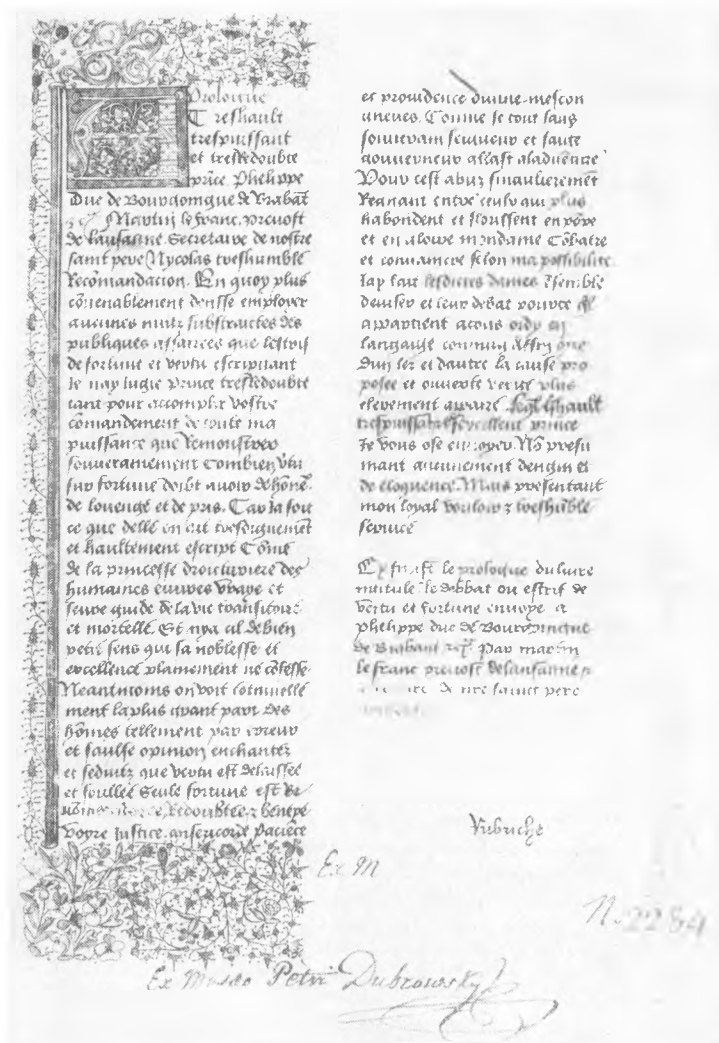 Prologue
Treshault
trespuissant
et tresredoubte
price Phelippe
Duc de Bourgoingne de Brabāt
Martin le franc prevost
de lausanne Secretaire de nostre
saint pere Nycolas treshumble
Recōmandacion. En quoy plus
cōvenablement deusse employer
aucunes nuitz substraictes des
publiques affaires que
de fortune et vertu escripuant
Je nay Iugie prince tresredoubte
tant pour accomplir vostre
cōmandement de toute ma
puissance que Remonstrer
souverainement Combien v̄tu
sur fortune doibt avoir dehōne.
de louenge et de pris. Car ia soit
ce que delle on ait tresdignemēt
et haultement escript Cōme
de la princesse droicturiere des
humaines euvres vraye et
seure guide de la vie transitoire
et mortelle. Et nya cil de bien
petit sens qui sa noblesse et
excellence plainement ne cōfesse
Neantmoins on voit cōtinuelle
ment la plus grant part des
hōmes tellement par erreur
et faulse opinion enchantez
et seduitz que vertu est delaissee
et foullee Seule fortune est
Recoubtee
voyre Justice misericorde pacience
et providence divine mescon
gneues. Comme se tout sans
souverain seigneur et sans
gouverneur allast a ladventure
Pour cest abuz singulierement
Regnant entre ceulx qui plus
habondent et
et en
et convaincre selon ma possibilite
Jay fait lesdictes dames ēsemble
deviser et leur debat pource
appartient a tous
langaige commun Affin que
dun lez et dautre la cause pro
posee et ouverte verite plus
clerement appaire
trespuissāt excellent prince
Je vous ose envoyer Nō presu
mant aucunement dengin et
de eloquence. Mais presentant
mon loyal vouloir et treshūble
service
Cy finist le prologue du livre
intitule le debbat ou estrif de
vertu et fortune envoye a
phelippe duc de Bourgoingne
de Brabant Par martin
le franc prevost de lausanne
de nre saint pere
Rubriche
Ex M
N. 2284
Ex Museo Petri Dubrowsky